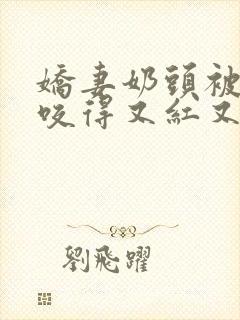 嬌妻奶頭被
咬得又紅又
劉飛躍